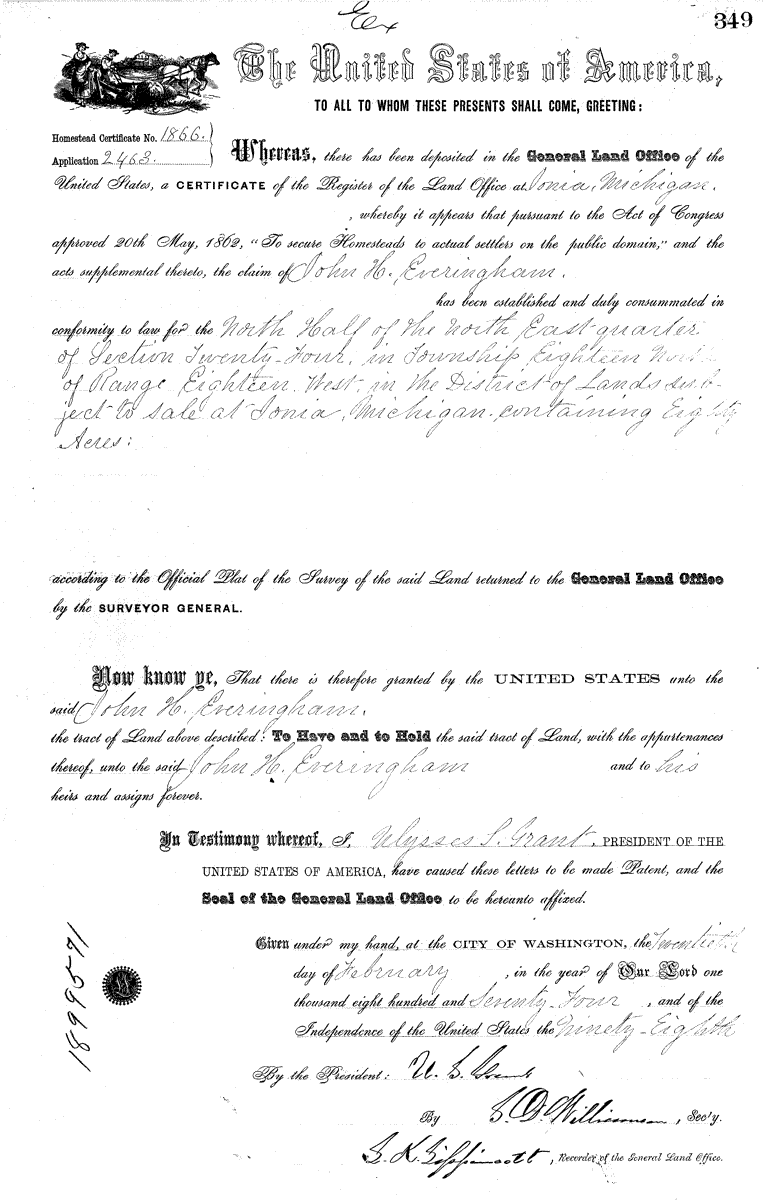 Ex
349
The United States of America,
TO ALL TO WHOM THESE PRESENTS SHALL COME, GREETING:
Homestead Certificate No. 1866.
Application 2463.
Whereas, there has been deposited in the General Land Office of the
United States, a CERTIFICATE of the Register of the Land Office at Ionia, Michigan.
, whereby it appears that pursuant to the Act of Congress
approved 20th May, 1862, "To secure Homesteads to actual settlers on the public domain," and the
acts supplemental thereto, the claim of John H. Everingham.
has been established and duly consummated in
conformity to law for the North Half of the North East quarter
of Section Twenty-Four, in Township Eighteen North
of Range Eighteen West, in the District of Lands sub-
ject to sale at Ionia, Michigan, containing Eighty
Acres:
according to the Official Plat of the Survey of the said Land returned to the General Land Office
by the SURVEYOR GENERAL.
Now know ye, That there is therefore granted by the UNITED STATES unto the
said John H. Everingham.
the tract of Land above described: To Have and to Hold the said tract of Land, with the appurtenances
thereof, unto the said John H. Everingham and to his
heirs and assigns forever.
In Testimony whereof, I, Ulysses S. Grant, PRESIDENT OF THE
UNITED STATES OF AMERICA, have caused these letters to be made Patent, and the
Seal of the General Land Office to be hereunto affixed.
Given under my hand, at the CITY OF WASHINGTON, the Twentieth
day of February , in the year of Our Lord one
thousand eight hundred and Seventy-Four , and of the
Independence of the United States the Ninety-Eighth
By the President: U. S. Grant
By S. D. Williamson, Sec'y.
, Recorder of the General Land Office.
1899571